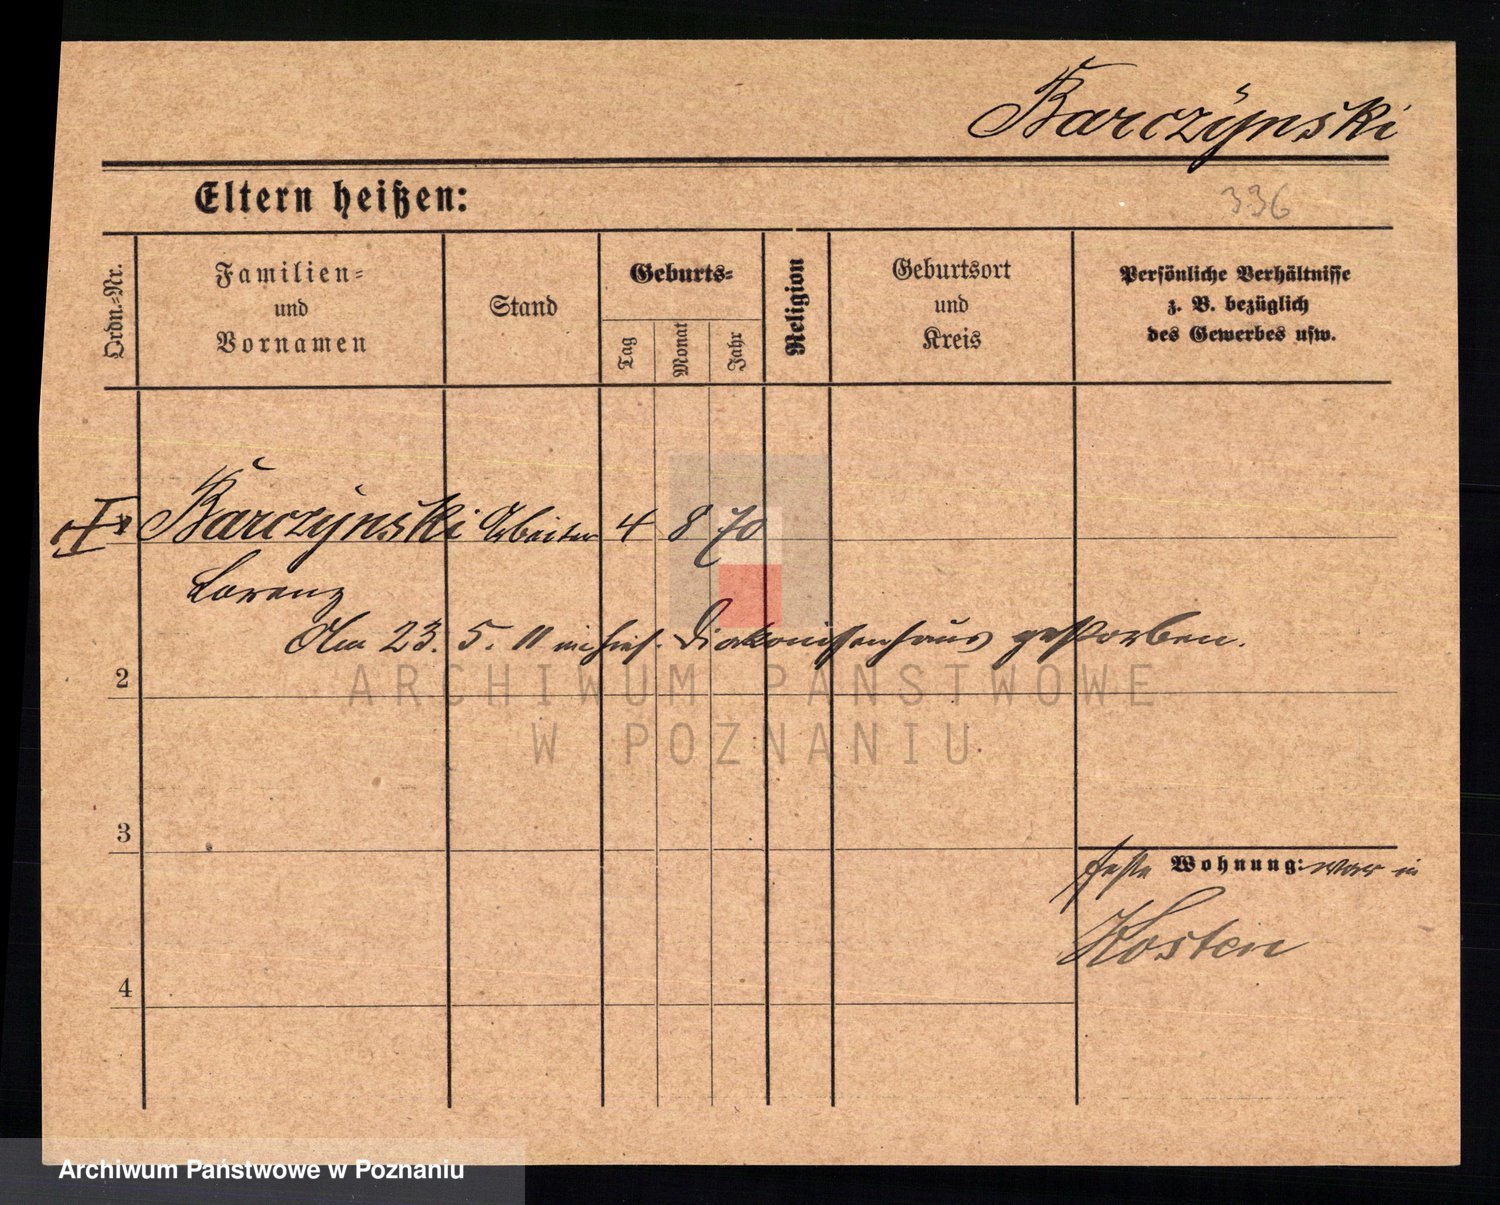 Barczynski
Eltern heißen:
336
Ordn.-Nr.
Familien-
und
Vornamen
Stand
Geburts-
Tag
Monat
Jahr
Religion
Geburtsort
und
Kreis
Persönliche Verhältnisse
z. B. bezüglich
des Gewerbes usw.
Barczynski Arbeiter 4 8 70
Lorenz
Am 23. 5. 11 im hies. Diakonissenhaus gestorben.
2
ARCHIWUM PAŃSTWOWE
W POZNANIU
3
feste Wohnung: war in
Kosten
4
Archiwum Państwowe w Poznaniu